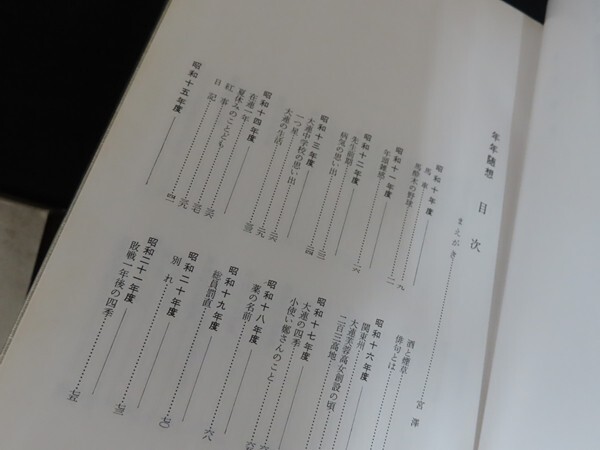 年年随想　目次
まえがき……宮澤
昭和十年度
馬車……九
馬酔木の野球……
昭和十一年度
年頭雑感……一二
昭和十二年度
病気の思い出……
昭和十三年度
大連中学校の思い出……一四
一つ星……
大連の生活……
昭和十四年度
在連一年……
夏休みのことども……
紅事……
日記……
昭和十五年度
酒と煙草
俳句とは
昭和十六年度
関東州
大連芙蓉高女創設の頃
二百三高地
昭和十七年度
大連の四季
小使い鄒さんのこと
昭和十八年度
薬の名前
昭和十九年度
総員罰直……六八
昭和二十年度
別れ……七〇
昭和二十一年度
敗戦一年後の四季……七五